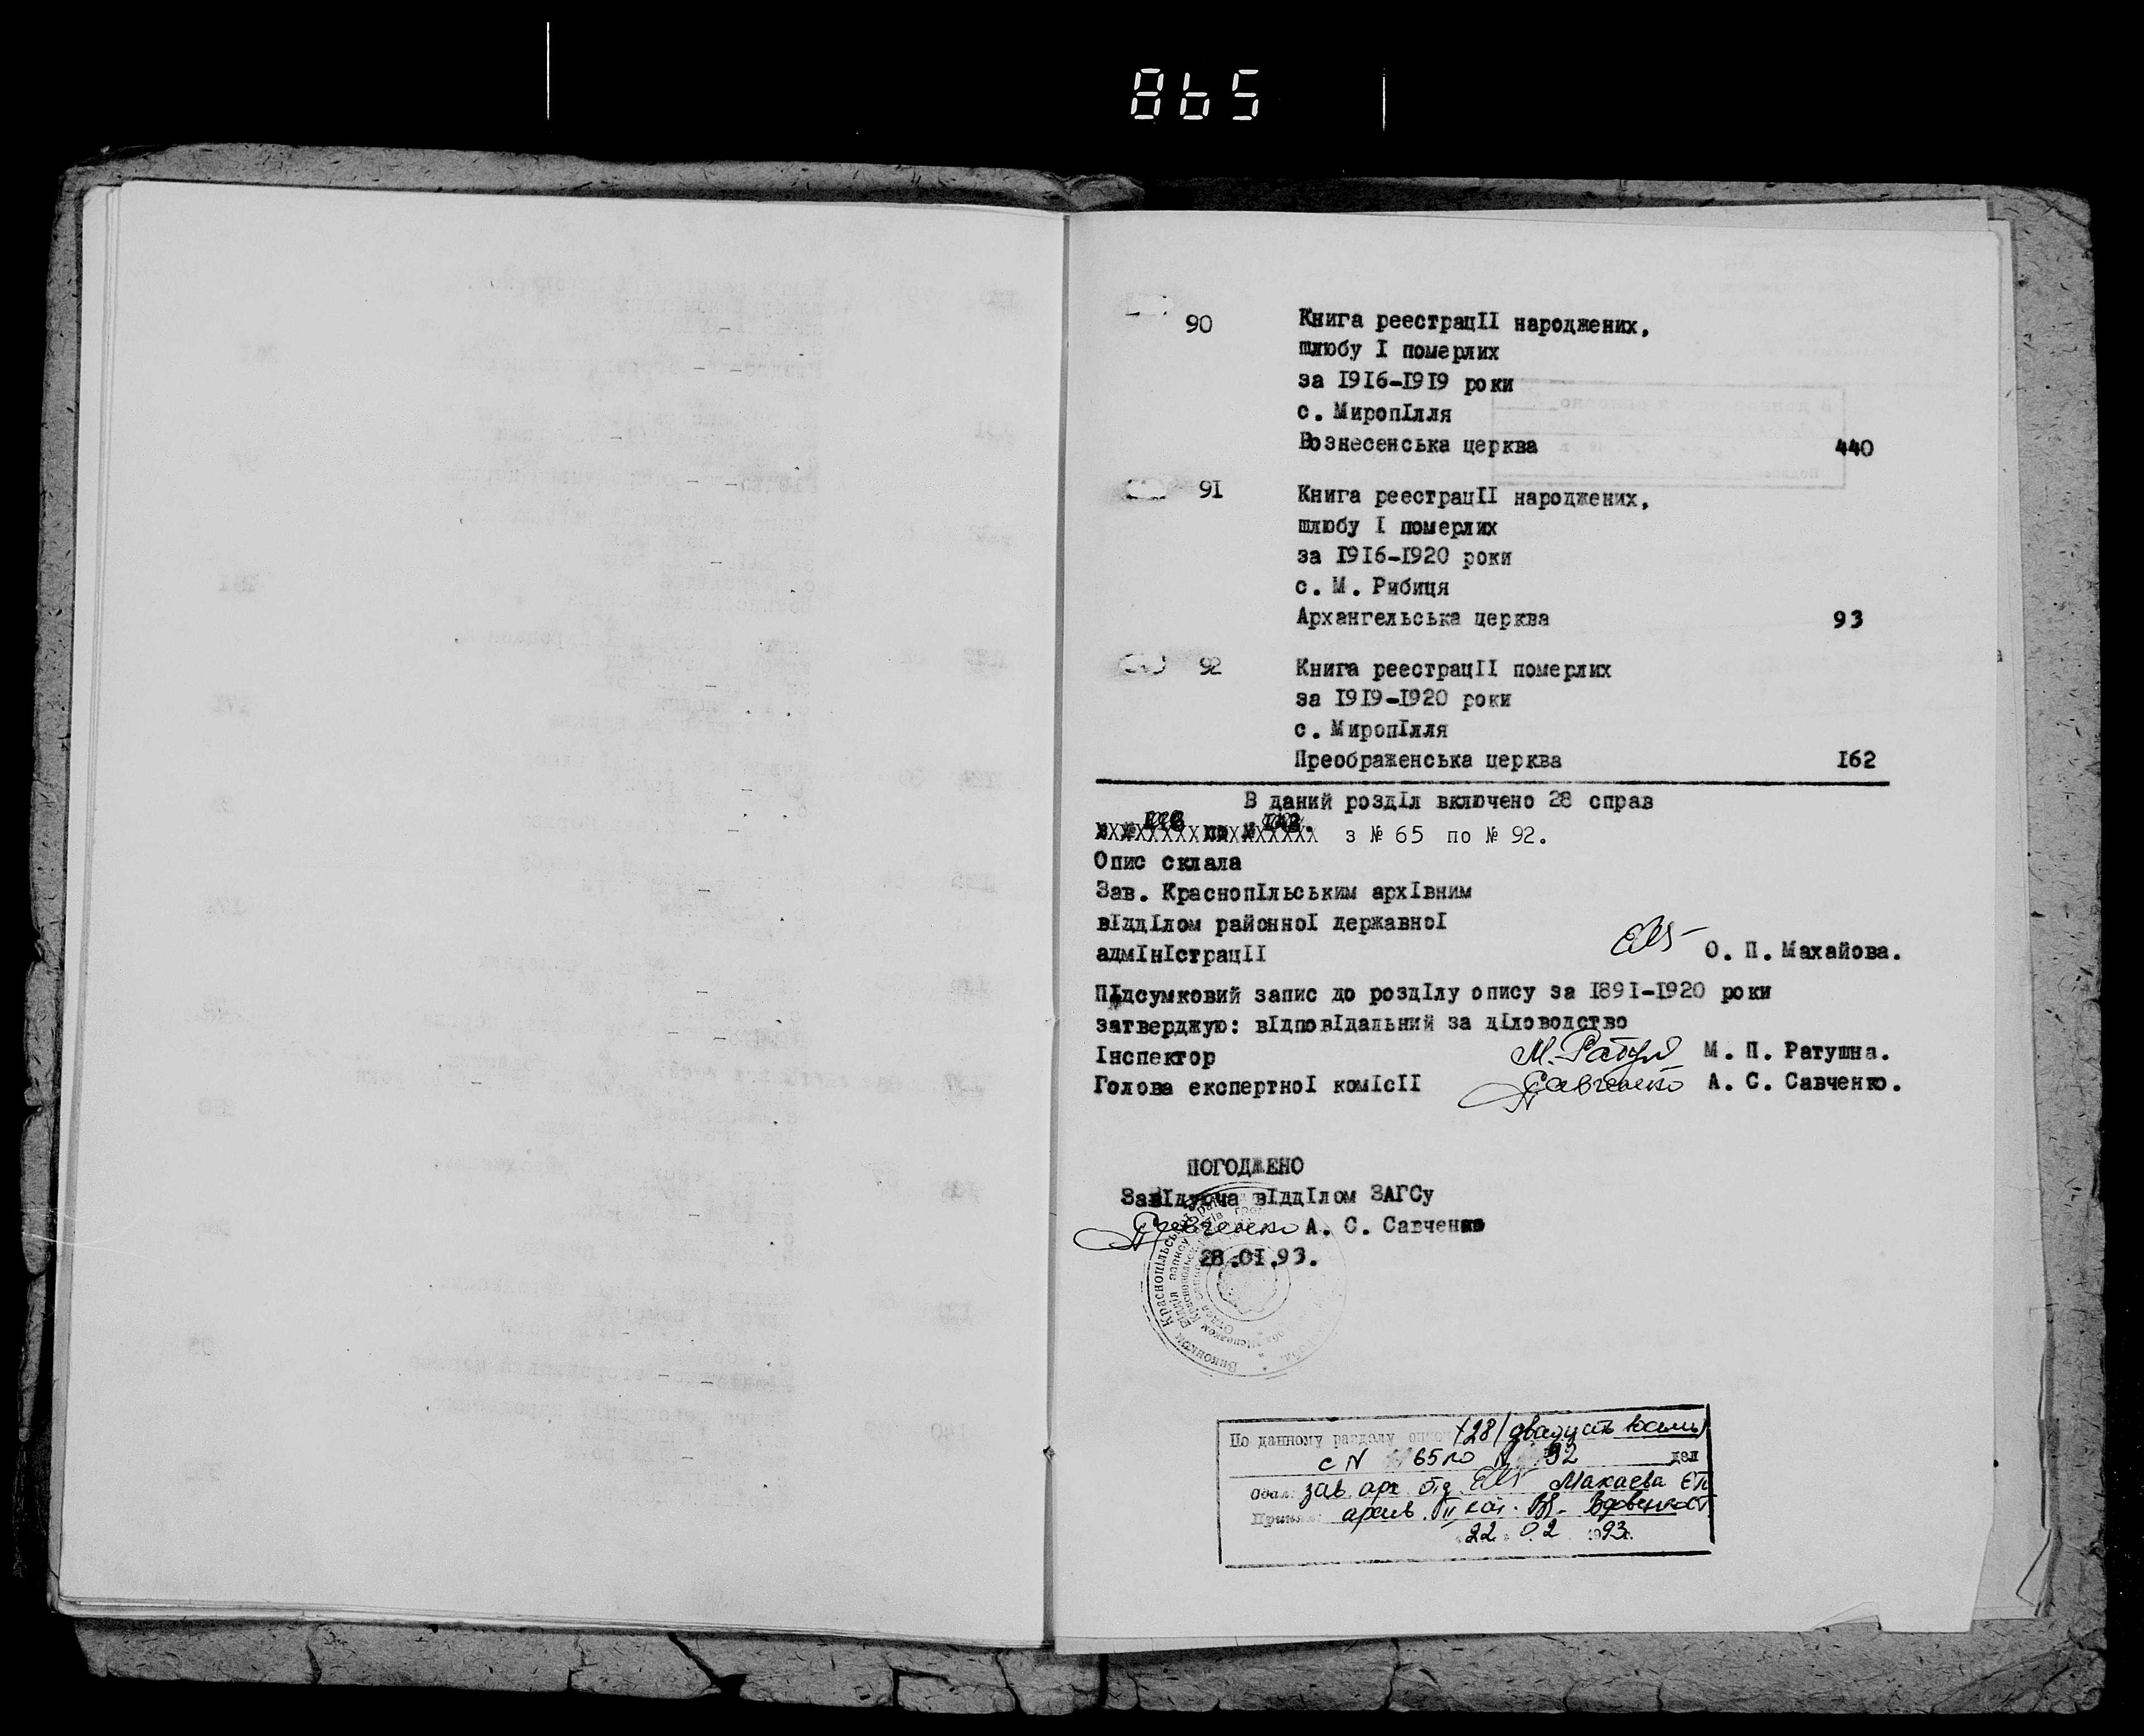 865
90 Книга реестрацІІ народжених,
шлюбу І померлих
за І9І6-І9І9 роки
с. МиропІлля
Вознесенська церква 440
9І Книга реестрацІІ народжених,
шлюбу І померлих
за І9І6-І920 роки
с. М. Рибиця
Архангельська церква 93
92 Книга реестрацІІ померлих
за І9І9-І920 роки
с. МиропІлля
Преображенська церква І62
В даний роздІл включено 28 справ
з № 65 по № 92.
Опис склала
Зав. КраснопІльським архІвним
вІддІлом районноІ державноІ
адмІнІстрацІІ О. П. Махайова.
ПІдсумковий запис до роздІлу опису за І89І-І920 роки
затверджую: вІдповІдальний за дІловодство
Інспектор М. Ратуш М. П. Ратушна.
Голова експертноІ комІсІІ Савченко А. С. Савченко.
ПОГОДЖЕНО
ЗавІдуюча вІддІлом ЗАГСу
Савченко А. С. Савченко
28.0І.93.
По данному разделу описи 28 (двадцать восемь)
с N 65 по N 92 дел
Сдал: зав. арх. отд. Макаева ЄП
Принял: архив. II кат.
22 02 1993г.